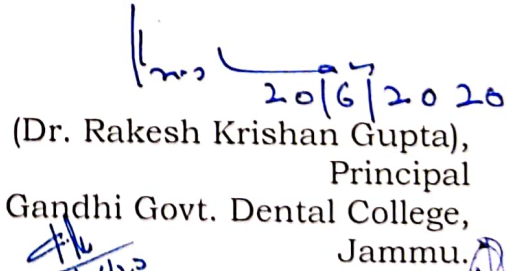 20/6/2020
(Dr. Rakesh Krishan Gupta),
Principal
Gandhi Govt. Dental College,
Jammu.